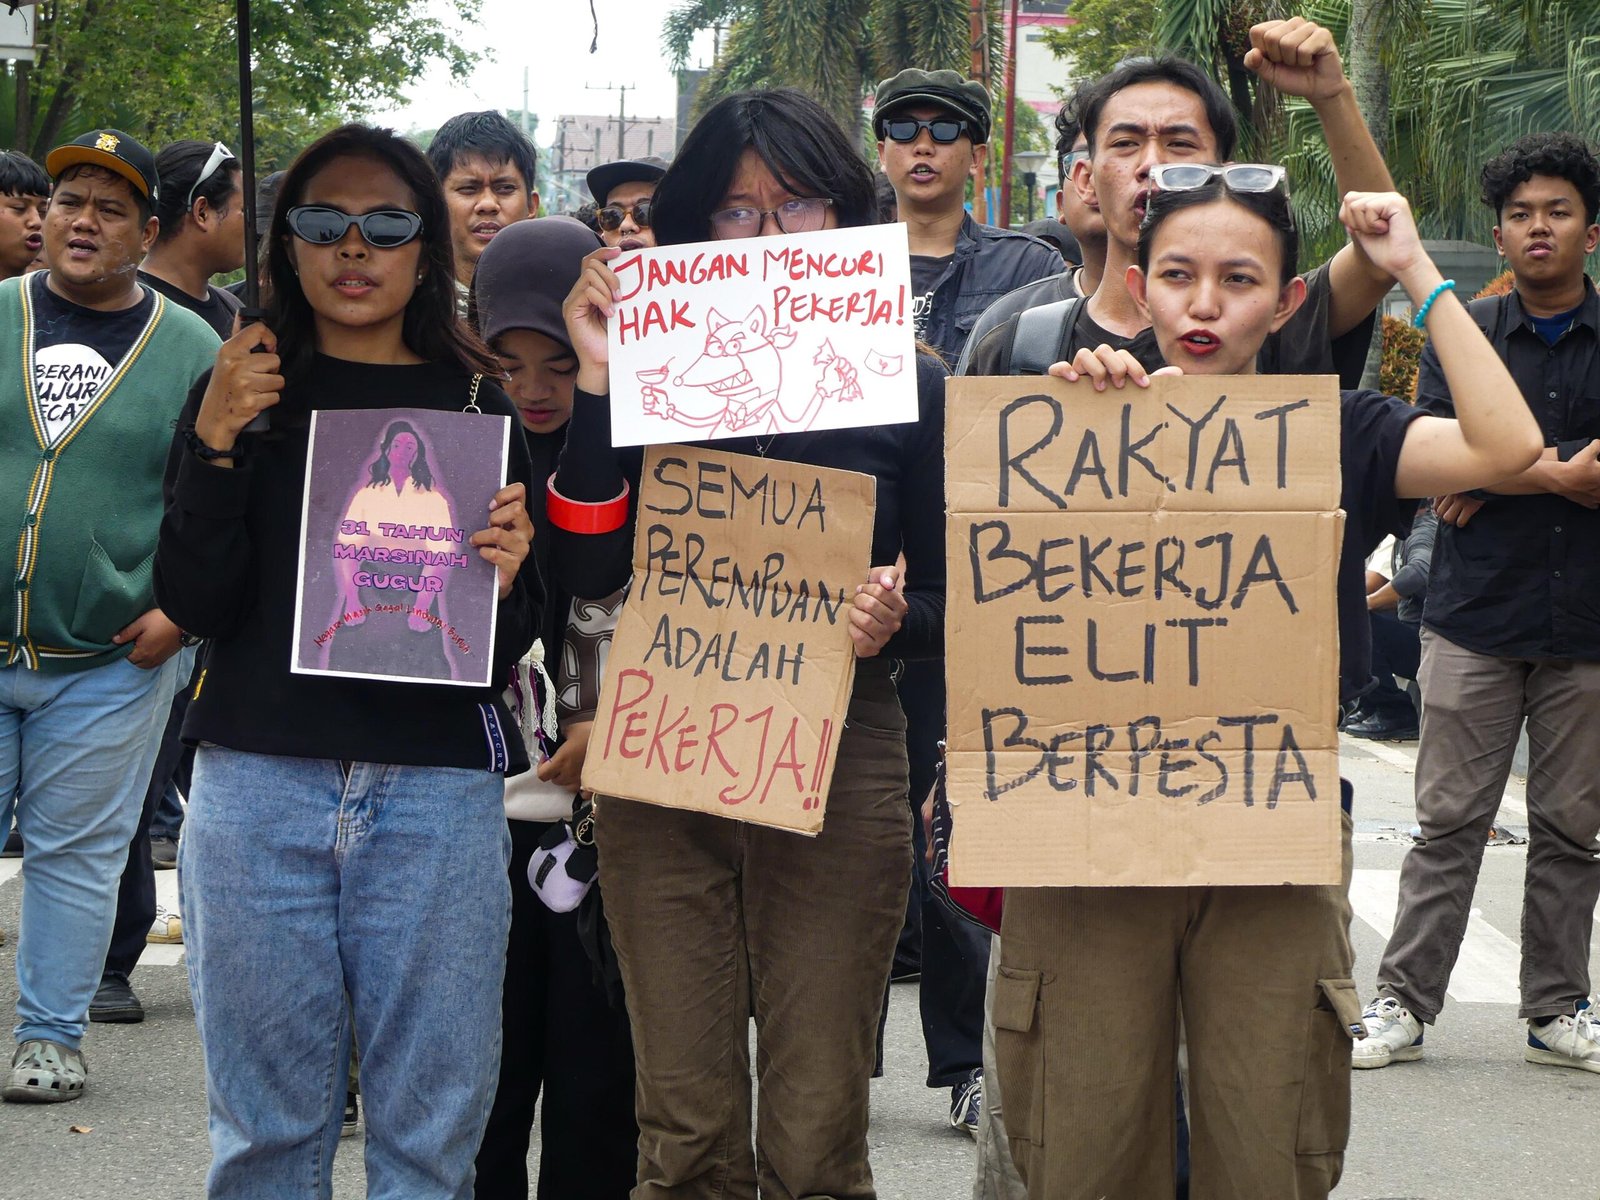 BERANI
JUJUR
31 TAHUN
MARSINAH
GUGUR
Negara Masih Gagal Lindungi Buruh
JANGAN MENCURI
HAK PEKERJA!
SEMUA
PEREMPUAN
ADALAH
PEKERJA!!
RAKYAT
BEKERJA
ELIT
BERPESTA